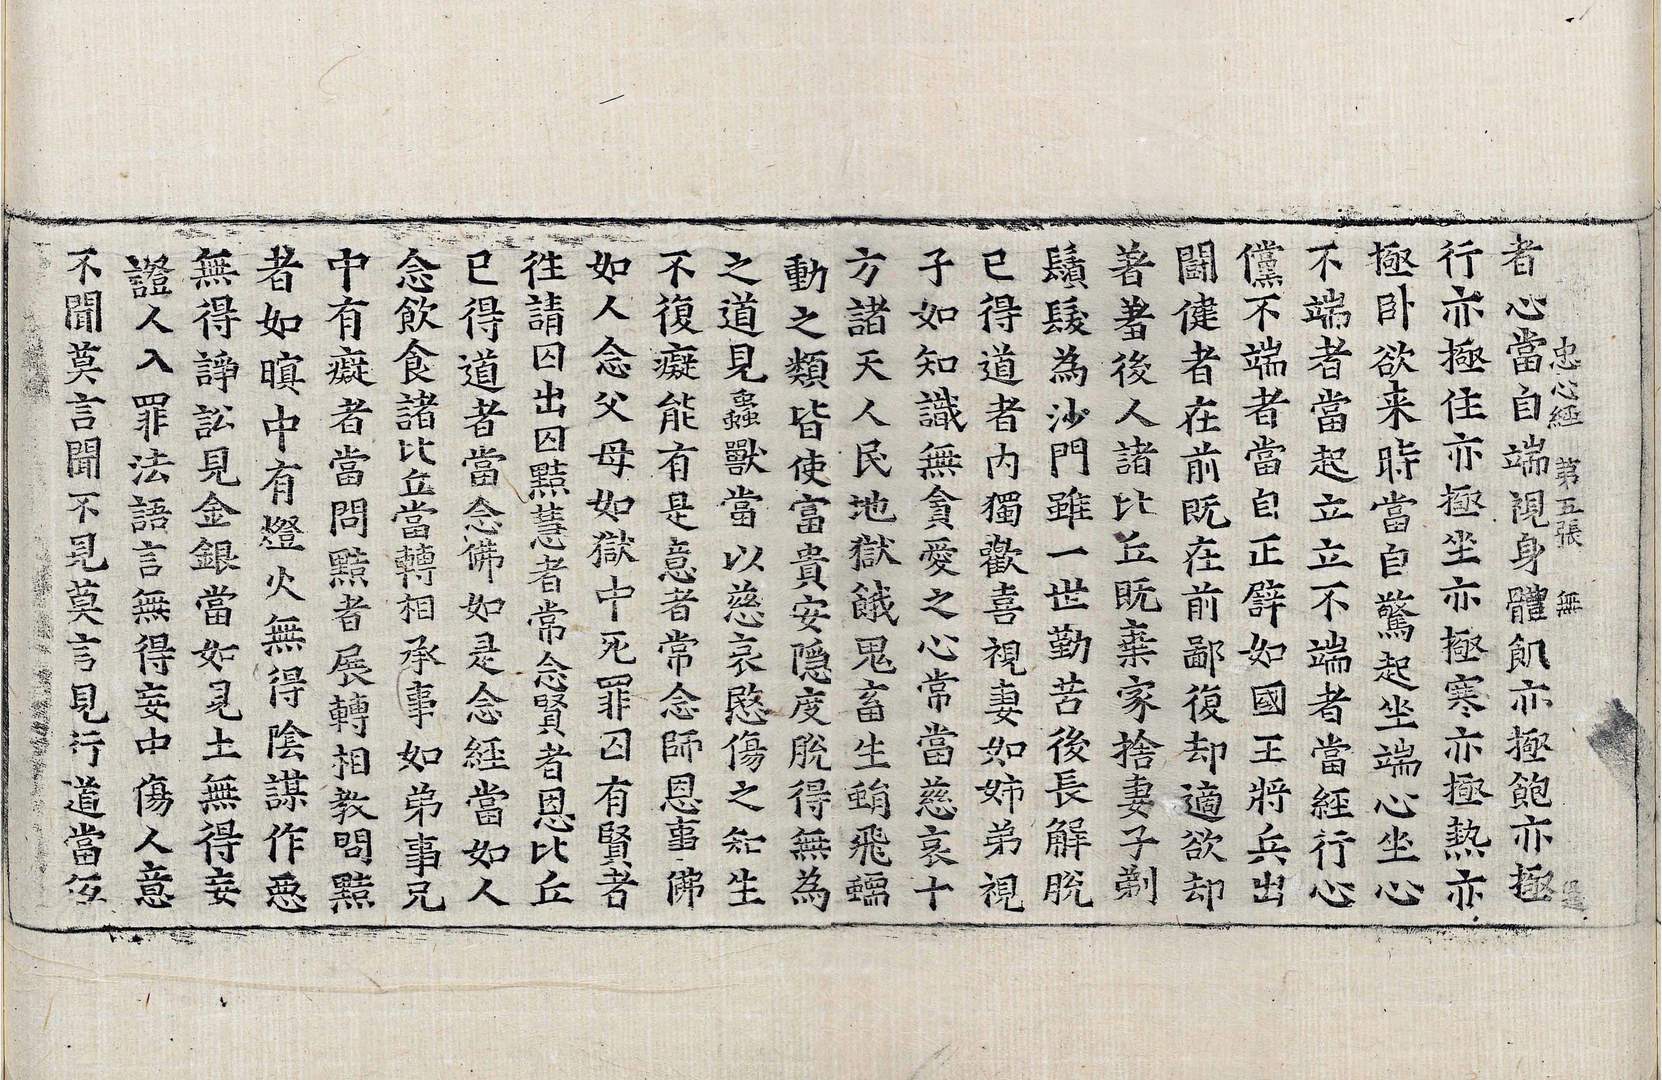 忠心經　第五張　無
者心當自端視身體飢亦極飽亦極
行亦極住亦極坐亦極寒亦極熱亦
極卧欲来時當自驚起坐端心坐心
不端者當起立立不端者當經行心
儻不端者當自正譬如國王將兵出
鬪健者在前既在前鄙復却適欲却
著羞後人諸比丘既棄家捨妻子剃
鬚髮為沙門雖一世勤苦後長解脫
已得道者內獨歡喜視妻如姉弟視
子如知識無貪愛之心常當慈哀十
方諸天人民地獄餓鬼畜生蜎飛蠕
動之類皆使富貴安隱度脫得無為
之道見蟲獸當以慈哀愍傷之知生
不復癡能有是意者常念師恩事佛
如人念父母如獄中死罪囚有賢者
徃請囚出囚黠慧者常念賢者恩比丘
已得道者當念佛如是念經當如人
念飲食諸比丘當轉相承事如弟事兄
中有癡者當問黠者展轉相教問黠
者如暝中有燈火無得陰謀作惡
無得諍訟見金銀當如見土無得妄
證人入罪法語言無得妄中傷人意
不聞莫言聞不見莫言見行道當伍